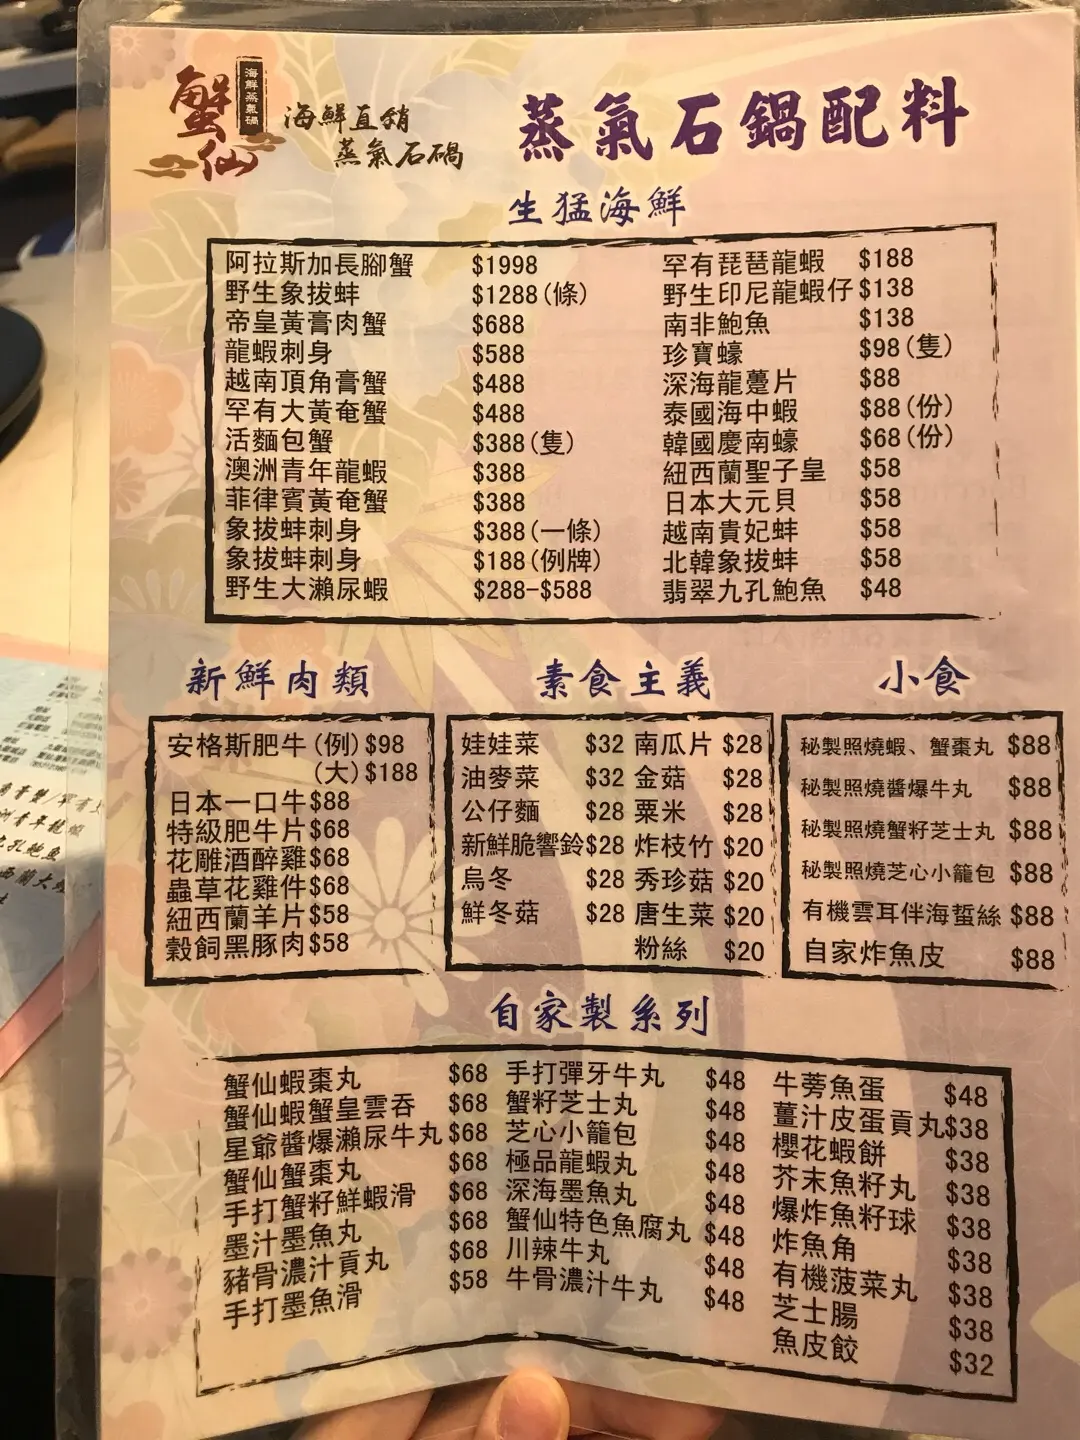 蟹仙
海鮮蒸氣鍋
海鮮直銷
蒸氣石鍋
蒸氣石鍋配料
生猛海鮮
阿拉斯加長腳蟹 $1998
野生象拔蚌 $1288(條)
帝皇黃膏肉蟹 $688
龍蝦刺身 $588
越南頂角膏蟹 $488
罕有大黃奄蟹 $488
活麵包蟹 $388(隻)
澳洲青年龍蝦 $388
菲律賓黃奄蟹 $388
象拔蚌刺身 $388(一條)
象拔蚌刺身 $188(例牌)
野生大瀨尿蝦 $288-$588
罕有琵琶龍蝦 $188
野生印尼龍蝦仔 $138
南非鮑魚 $138
珍寶蠔 $98(隻)
深海龍躉片 $88
泰國海中蝦 $88(份)
韓國慶南蠔 $68(份)
紐西蘭聖子皇 $58
日本大元貝 $58
越南貴妃蚌 $58
北韓象拔蚌 $58
翡翠九孔鮑魚 $48
新鮮肉類
安格斯肥牛(例)$98
(大)$188
日本一口牛$88
特級肥牛片$68
花雕酒醉雞$68
蟲草花雞件$68
紐西蘭羊片$58
穀飼黑豚肉$58
素食主義
娃娃菜 $32
油麥菜 $32
公仔麵 $28
新鮮脆響鈴$28
烏冬 $28
鮮冬菇 $28
南瓜片 $28
金菇 $28
粟米 $28
炸枝竹 $20
秀珍菇 $20
唐生菜 $20
粉絲 $20
小食
秘製照燒蝦、蟹棗丸 $88
秘製照燒醬爆牛丸 $88
秘製照燒蟹籽芝士丸 $88
秘製照燒芝心小籠包 $88
有機雲耳伴海蜇絲 $88
自家炸魚皮 $88
自家製系列
蟹仙蝦棗丸 $68
蟹仙蝦蟹皇雲吞 $68
星爺醬爆瀨尿牛丸 $68
蟹仙蟹棗丸 $68
手打蟹籽鮮蝦滑 $68
墨汁墨魚丸 $68
豬骨濃汁貢丸 $68
手打墨魚滑 $58
手打彈牙牛丸 $48
蟹籽芝士丸 $48
芝心小籠包 $48
極品龍蝦丸 $48
深海墨魚丸 $48
蟹仙特色魚腐丸 $48
川辣牛丸 $48
牛骨濃汁牛丸 $48
牛蒡魚蛋 $48
薑汁皮蛋貢丸$38
櫻花蝦餅 $38
芥末魚籽丸 $38
爆炸魚籽球 $38
炸魚角 $38
有機菠菜丸 $38
芝士腸 $38
魚皮餃 $32